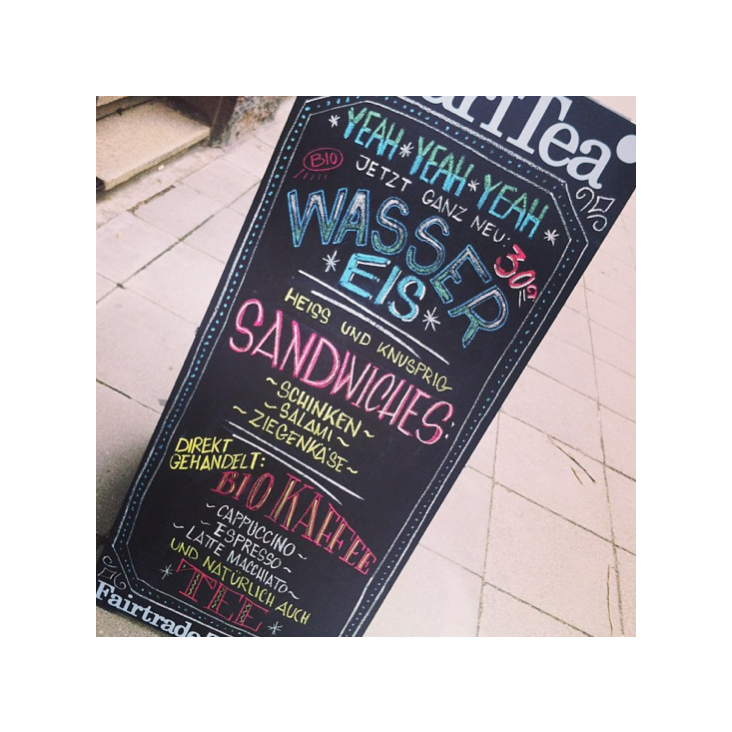 Tea
*YEAH*YEAH*YEAH*
BIO
JETZT GANZ NEU:
WASSER
30¢
*EIS*
HEISS UND KNUSPRIG
SANDWICHES:
~SCHINKEN~
~SALAMI~
~ZIEGENKÄSE~
DIREKT
GEHANDELT:
BIO KAFFEE
~CAPPUCCINO~
~ESPRESSO~
~LATTE MACCHIATO~
UND NATÜRLICH AUCH
*TEE*
Fairtrade